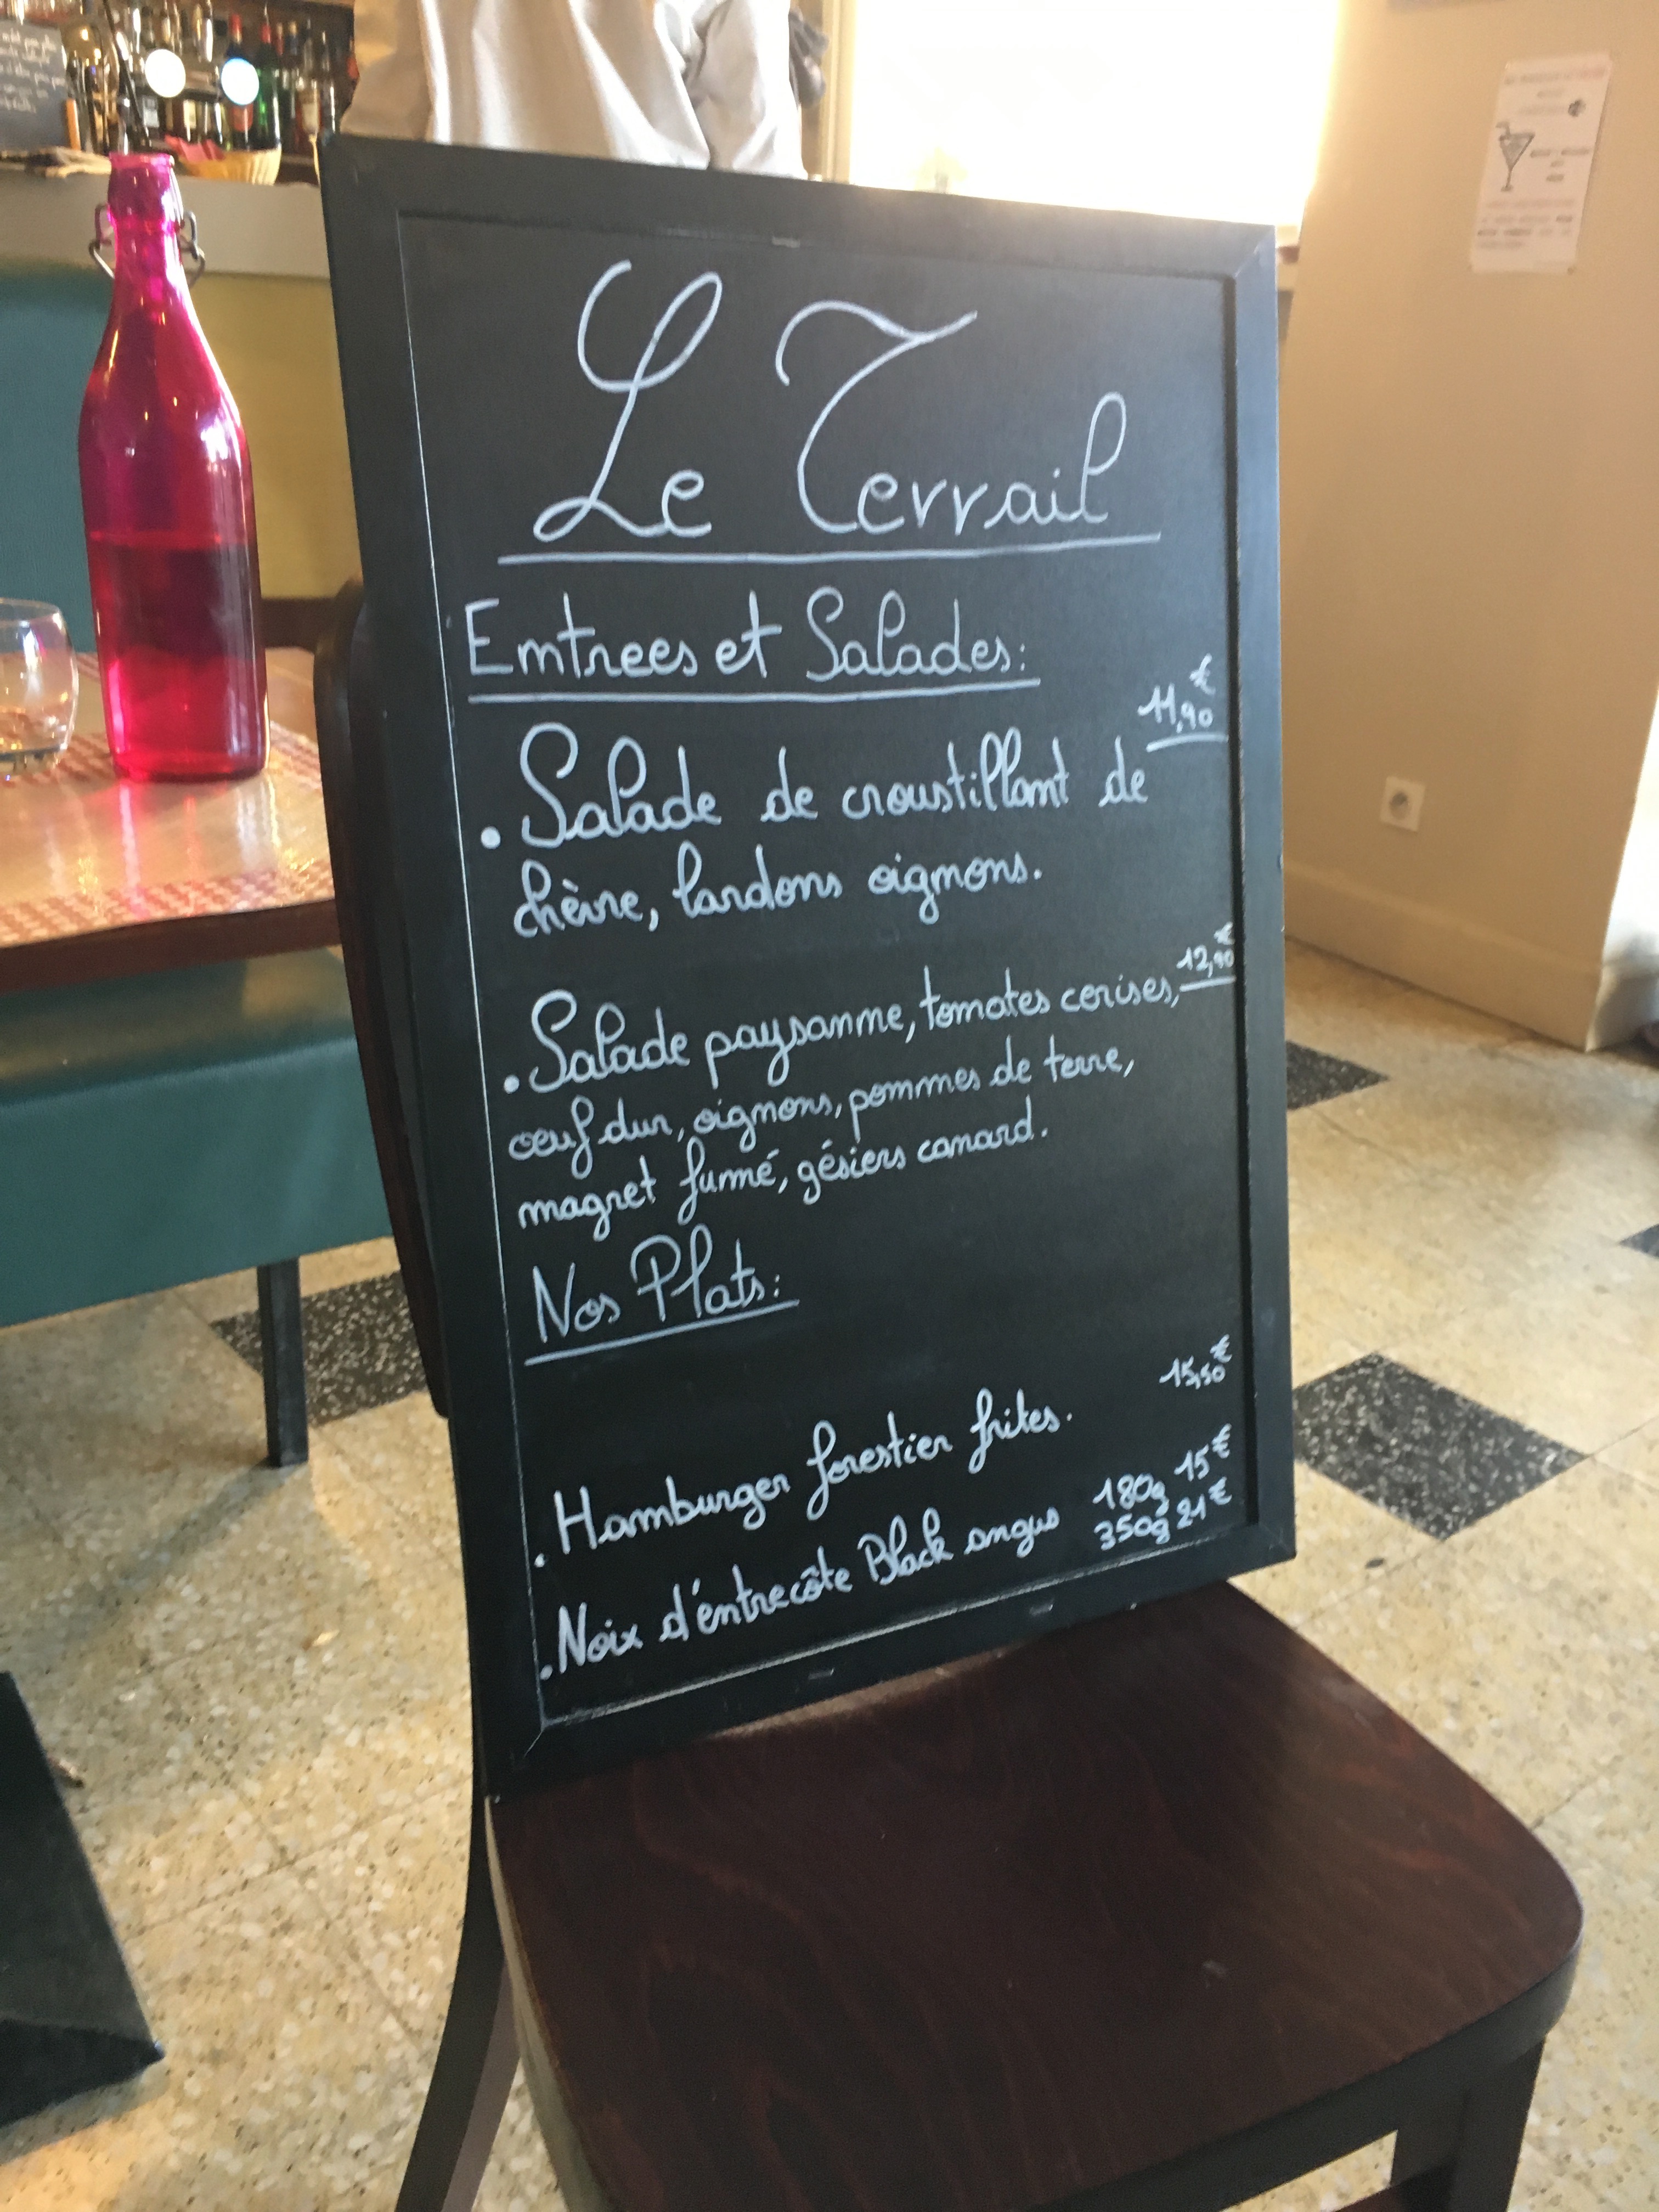 Le Terrail
Entrees et Salades:
11,90€
• Salade de croustillant de
chèvre, lardons oignons.
12,90€
• Salade paysanne, tomates cerises,
oeuf dur, oignons, pommes de terre,
magret fumé, gésiers canard.
Nos Plats:
15,50€
• Hamburger forestier frites.
• Noix d'entrecôte Black angus 180g 15€
350g 21€